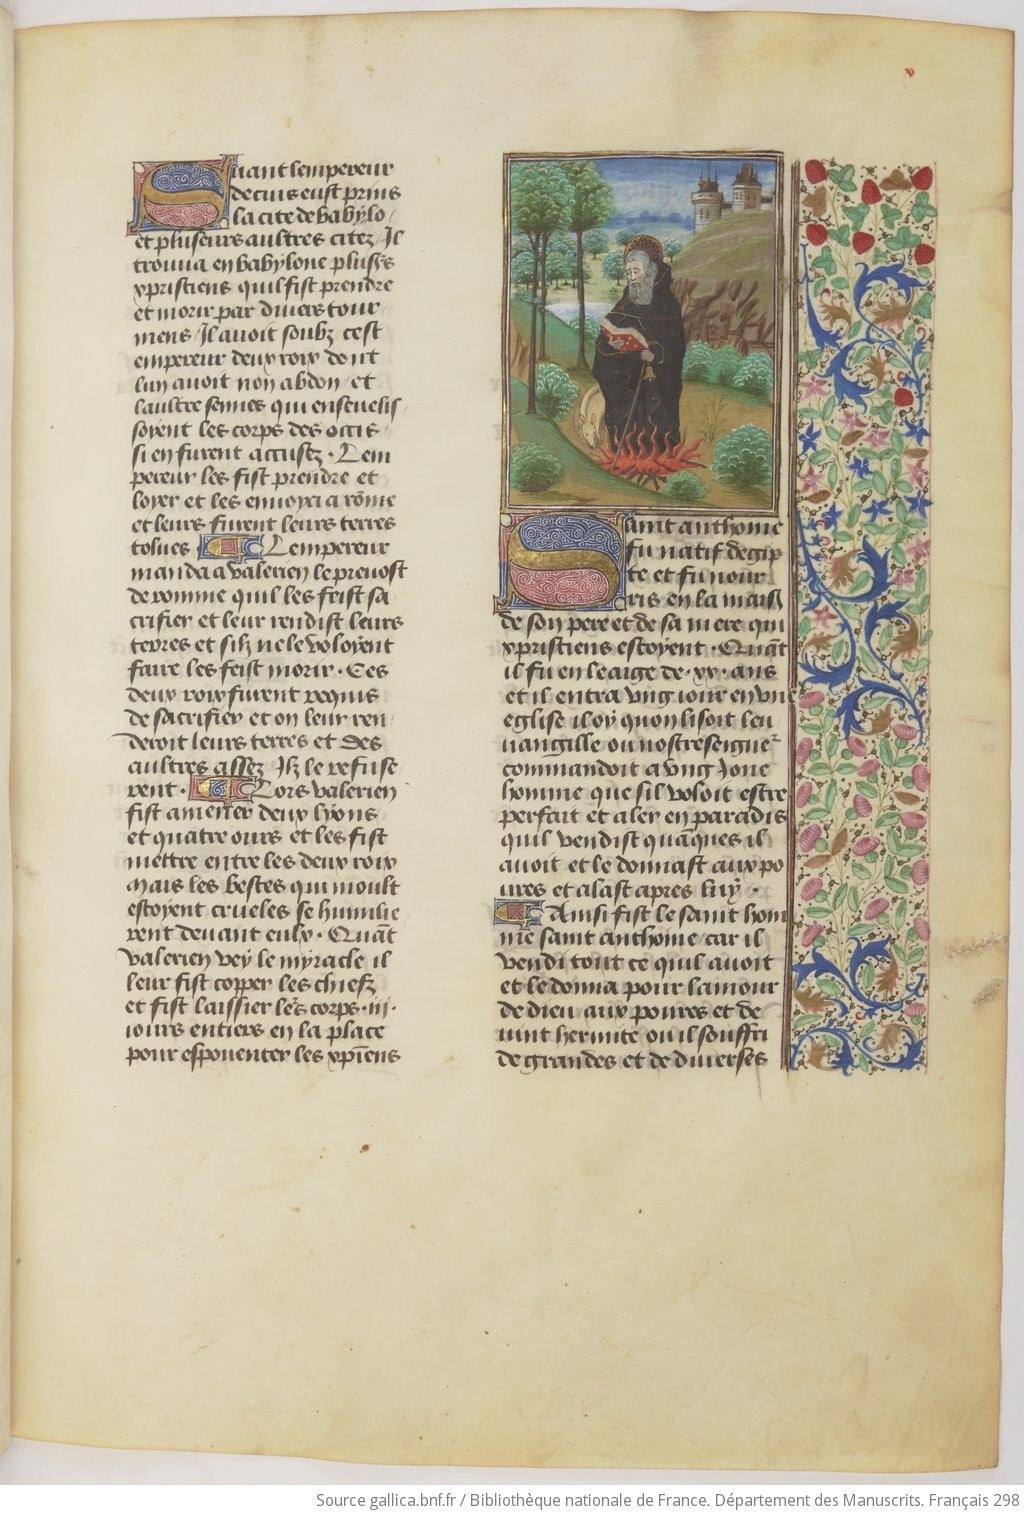 Quant lempereur
decius eust prins
la cite de babylo/
et pluseurs aultres citez / Il
trouua en babylone pluss
xpristiens quil fist prendre
et morir par diuers tour
mens / Il auoit soubz cest
empereur deux roix dont
lun auoit non abdon / et
laultre sennes qui enseuelis
soyent les corps des occis
si en furent accusez · Lem
pereur les fist prendre et
loyer et les enuoya a rōme
et leurs furent leurs terres
tolues Lempereur
manda a valerien le preuost
de romme quil les feist sa
crifier et leur rendist leurs
terres et silz ne le voloyent
faire les feist morir · Ces
deux roix furent requis
de sacrifier et on leur ren
deroit leurs terres et des
aultres assez Ilz le refuse
rent · Lors valerien
fist amener deux lyons
et quatre ours et les fist
mettre entre les deux roix
Mais les bestes qui moult
estoyent crueles se humilie
rent deuant eulx · Quāt
valerien vey le myracle il
leur fist copper les chiefz
et fist laissier les corps ·iii·
iours entiers en la place
pour espouenter les xp̄iens
Saint anthoine
fu natif degip
te et fu nour
ris en la mais̄
de son pere et de sa mere qui
xpristiens estoyent · Quāt
il fu en leaige de ·xx· ans
et il entra vng iour en vne
eglise il oy quon lisoit leu
uangille ou nostreseigne
commandoit a vng Jone
homme que sil voloit estre
perfait et aler en paradis
quil vendist quāques il
auoit et le donnast aux po
ures et alast apres luy ·
Ainsi fist le saint hom
me saint anthoine car il
vendi tout ce quil auoit
et le donna pour lamour
de dieu aux poures et de
uint hermite ou il souffri
de grandes et de diuerses
Source gallica.bnf.fr / Bibliothèque nationale de France. Département des Manuscrits. Français 298